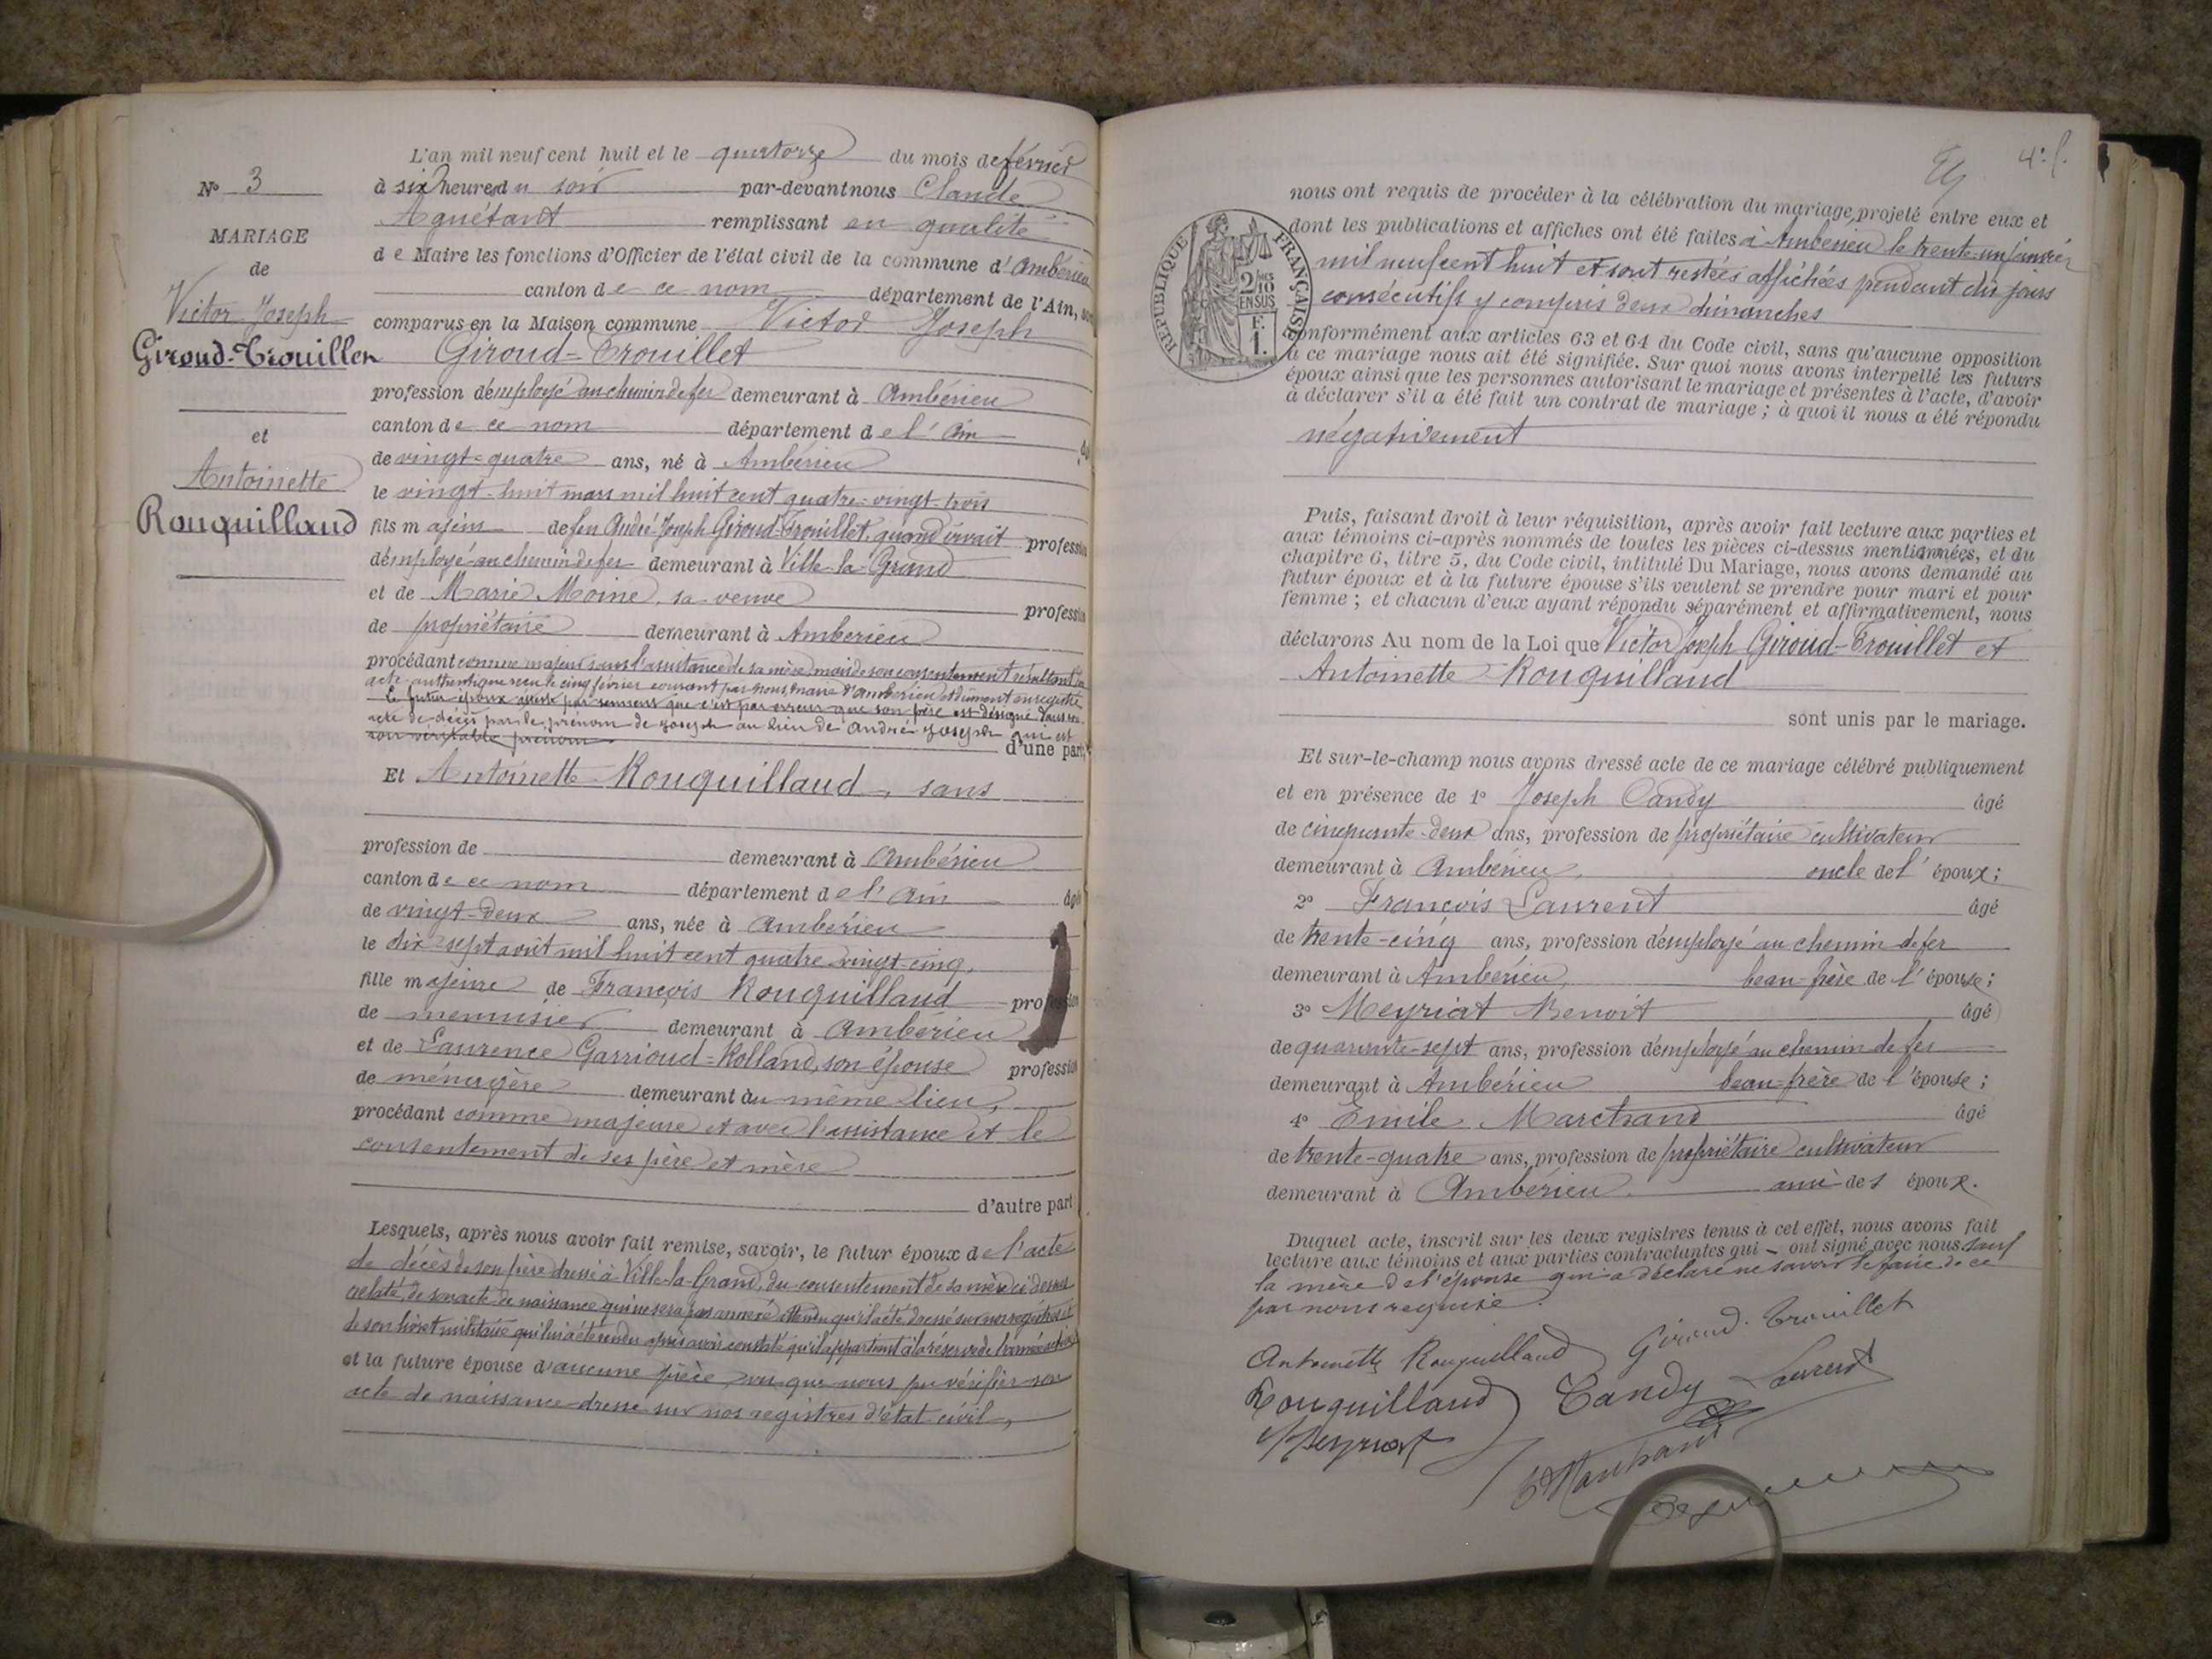 N° 3
MARIAGE
de
Victor Joseph
Giroud-Trouillet
et
Antoinette
Rouquilland
L'an mil neuf cent huit et le quatorze du mois de février
à six heures du soir par-devant nous Claude
Aguétant remplissant en qualité
de Maire les fonctions d'Officier de l'état civil de la commune d'Ambérieu
canton de ce nom département de l'Ain, sont
comparus en la Maison commune Victor Joseph
Giroud-Trouillet
profession d'employé au chemin de fer demeurant à Ambérieu
canton de ce nom département de l'Ain
de vingt-quatre ans, né à Ambérieu
le vingt-huit mars mil huit cent quatre-vingt-trois
fils majeur de feu André-Joseph Giroud-Trouillet, quand vivait profession
d'employé au chemin de fer demeurant à Ville-la-Grand
et de Marie Moine, sa veuve profession
de propriétaire demeurant à Ambérieu
procédant comme majeur sans l'assistance de sa mère, mais de son consentement résultant d'un
acte authentique reçu le cinq février courant par nous, maire d'Ambérieu et dûment enregistré
Le futur époux ayant par serment que c'est par erreur que son père est désigné dans son
acte de décès par le prénom de Joseph au lieu de André-Joseph qui est
son véritable prénom d'une part,
Et Antoinette Rouquilland, sans
profession de demeurant à Ambérieu
canton de ce nom département de l'Ain âgée
de vingt-deux ans, née à Ambérieu
le dix-sept août mil huit cent quatre vingt-cinq,
fille majeure de François Rouquilland profession
de menuisier demeurant à Ambérieu
et de Laurence Garrioud-Rolland, son épouse profession
de ménagère demeurant au même lieu,
procédant comme majeure et avec l'assistance et le
consentement de ses père et mère
d'autre part
Lesquels, après nous avoir fait remise, savoir, le futur époux de l'acte
de décès de son père dressé à Ville-la-Grand, du consentement de sa mère ci-dessus
relaté, de son acte de naissance qui ne sera pas annexé attendu qu'il a été dressé sur nos registres et
de son livret militaire qui lui a été rendu après avoir constaté qu'il appartient à la réserve de l'armée active
et la future épouse d'aucune pièce, vu que nous pu vérifier son
acte de naissance dressé sur nos registres d'état civil,
4e f.
nous ont requis de procéder à la célébration du mariage projeté entre eux et
dont les publications et affiches ont été faites à Ambérieu le trente-un janvier
mil neuf cent huit et sont restées affichées pendant dix jours
consécutifs y compris deux dimanches
RÉPUBLIQUE FRANÇAISE
2/10
EN SUS
F.
1.
conformément aux articles 63 et 64 du Code civil, sans qu'aucune opposition
à ce mariage nous ait été signifiée. Sur quoi nous avons interpellé les futurs
époux ainsi que les personnes autorisant le mariage et présentes à l'acte, d'avoir
à déclarer s'il a été fait un contrat de mariage ; à quoi il nous a été répondu
négativement
Puis, faisant droit à leur réquisition, après avoir fait lecture aux parties et
aux témoins ci-après nommés de toutes les pièces ci-dessus mentionnées, et du
chapitre 6, titre 5, du Code civil, intitulé Du Mariage, nous avons demandé au
futur époux et à la future épouse s'ils veulent se prendre pour mari et pour
femme ; et chacun d'eux ayant répondu séparément et affirmativement, nous
déclarons Au nom de la Loi que Victor Joseph Giroud-Trouillet et
Antoinette Rouquilland
sont unis par le mariage.
Et sur-le-champ nous avons dressé acte de ce mariage célébré publiquement
et en présence de 1° Joseph Tandy âgé
de cinquante-deux ans, profession de propriétaire cultivateur
demeurant à Ambérieu, oncle de l'époux ;
2° François Laurent âgé
de trente-cinq ans, profession d'employé au chemin de fer
demeurant à Ambérieu, beau-frère de l'épouse ;
3° Meyriat Benoit âgé
de quarante-sept ans, profession d'employé au chemin de fer
demeurant à Ambérieu beau-frère de l'épouse ;
4° Emile Marchand âgé
de trente-quatre ans, profession de propriétaire cultivateur
demeurant à Ambérieu. ami des époux.
Duquel acte, inscrit sur les deux registres tenus à cet effet, nous avons fait
lecture aux témoins et aux parties contractantes qui ont signé avec nous sauf
la mère de l'épouse qui a déclaré ne savoir le faire de ce
par nous requise.
Antoinette Rouquilland Giroud-Trouillet
Rouquilland Tandy Laurent
Meyriat
E Marchand